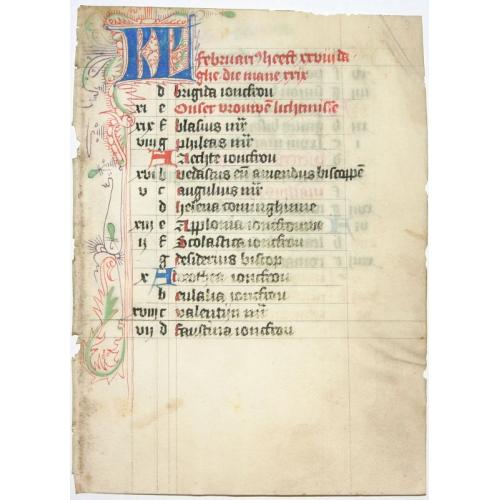 KL februari9 heeft xxviii da
ghe die mane xxix
d brigida ionckfrou
xi e Onser vrouwen lichtmisse
xix f blasius mr
viii g phileas mr
A Aechte ionckfrou
xvi b vedastus en amandus bisscoppen
v c augulius mr
d helena coninghinne
xiii e Applonia ionckfrouwe
ii f Scolastica ionckfrou
g desiderius biscop
x A dorothea ionckfrou
b eulalia ionckfrou
xviii c valentijn mr
vii d faustina ionckfrou